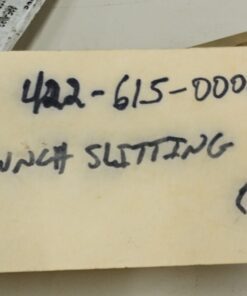 422-615-000
UNCH SLITTING
(